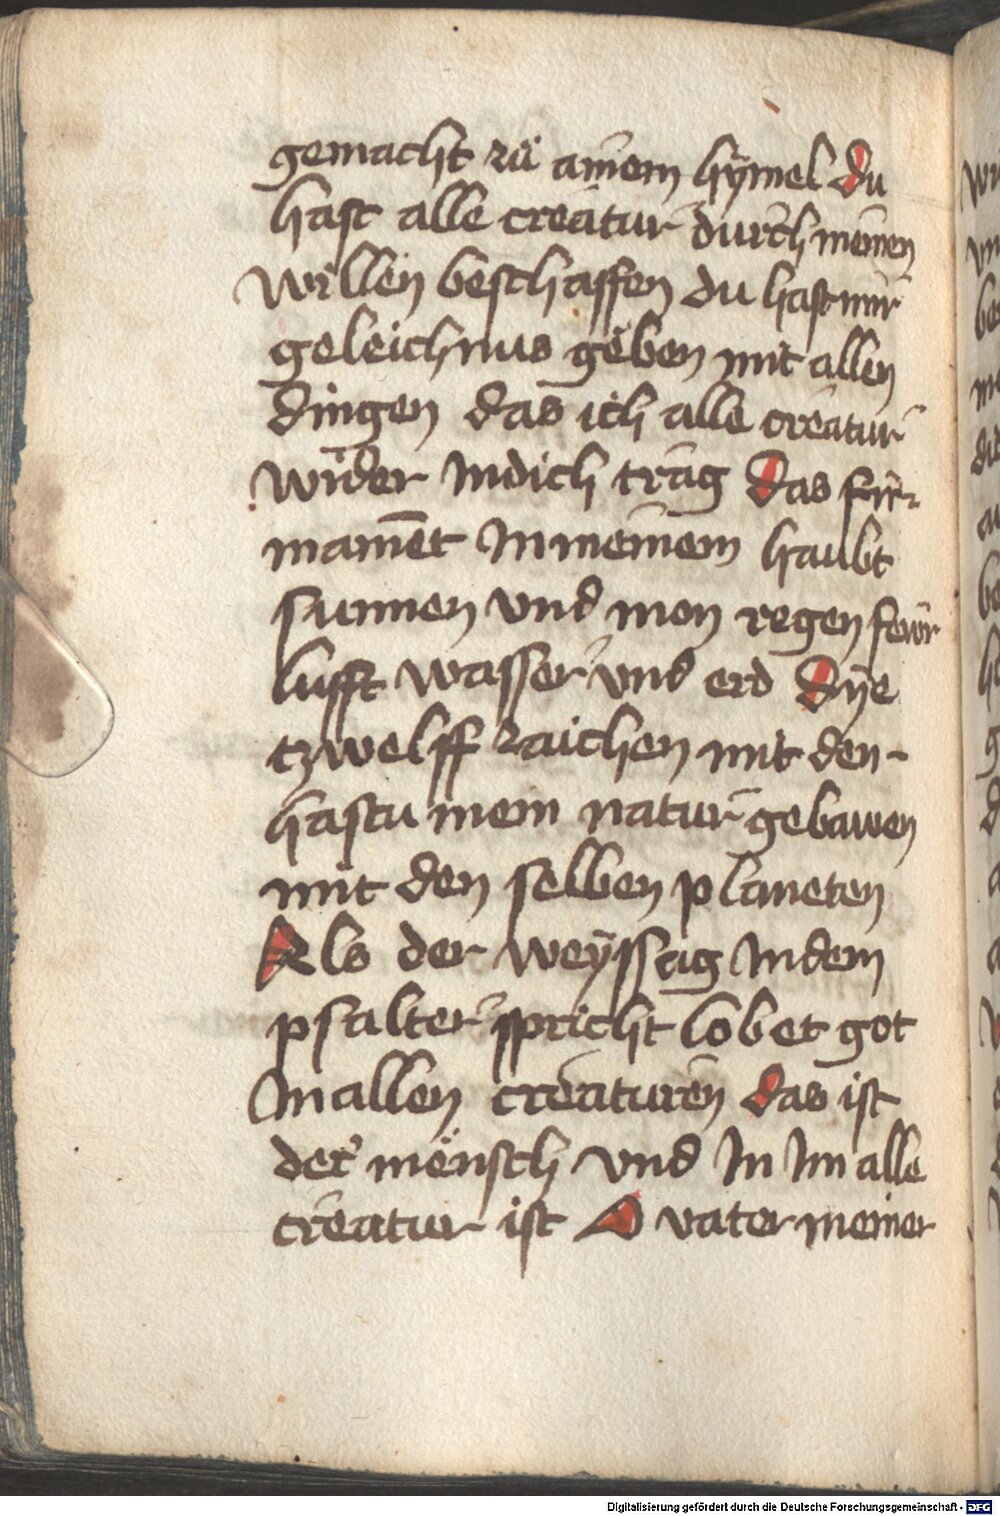 gemacht zů ainem hÿmel du
hast alle creatur durch meinen
willen beschaffen du hast mir
geleichnus geben mit allen
dingen das ich alle creatur
wider Indich trag das fir-
mamēt In meinem haubt
sunnen vnd mon regen fewr
lufft wasser vnd erd dÿe
tzwelff zaichen mit den-
hastu mein natur gebawen
mit den selben planeten
Als der weÿssag Indem
psalter spricht lobet got
In allen creaturen das ist
der mënsch vnd In Im alle
creatur ist O vater meiner
Digitalisierung gefördert durch die Deutsche Forschungsgemeinschaft - DFG